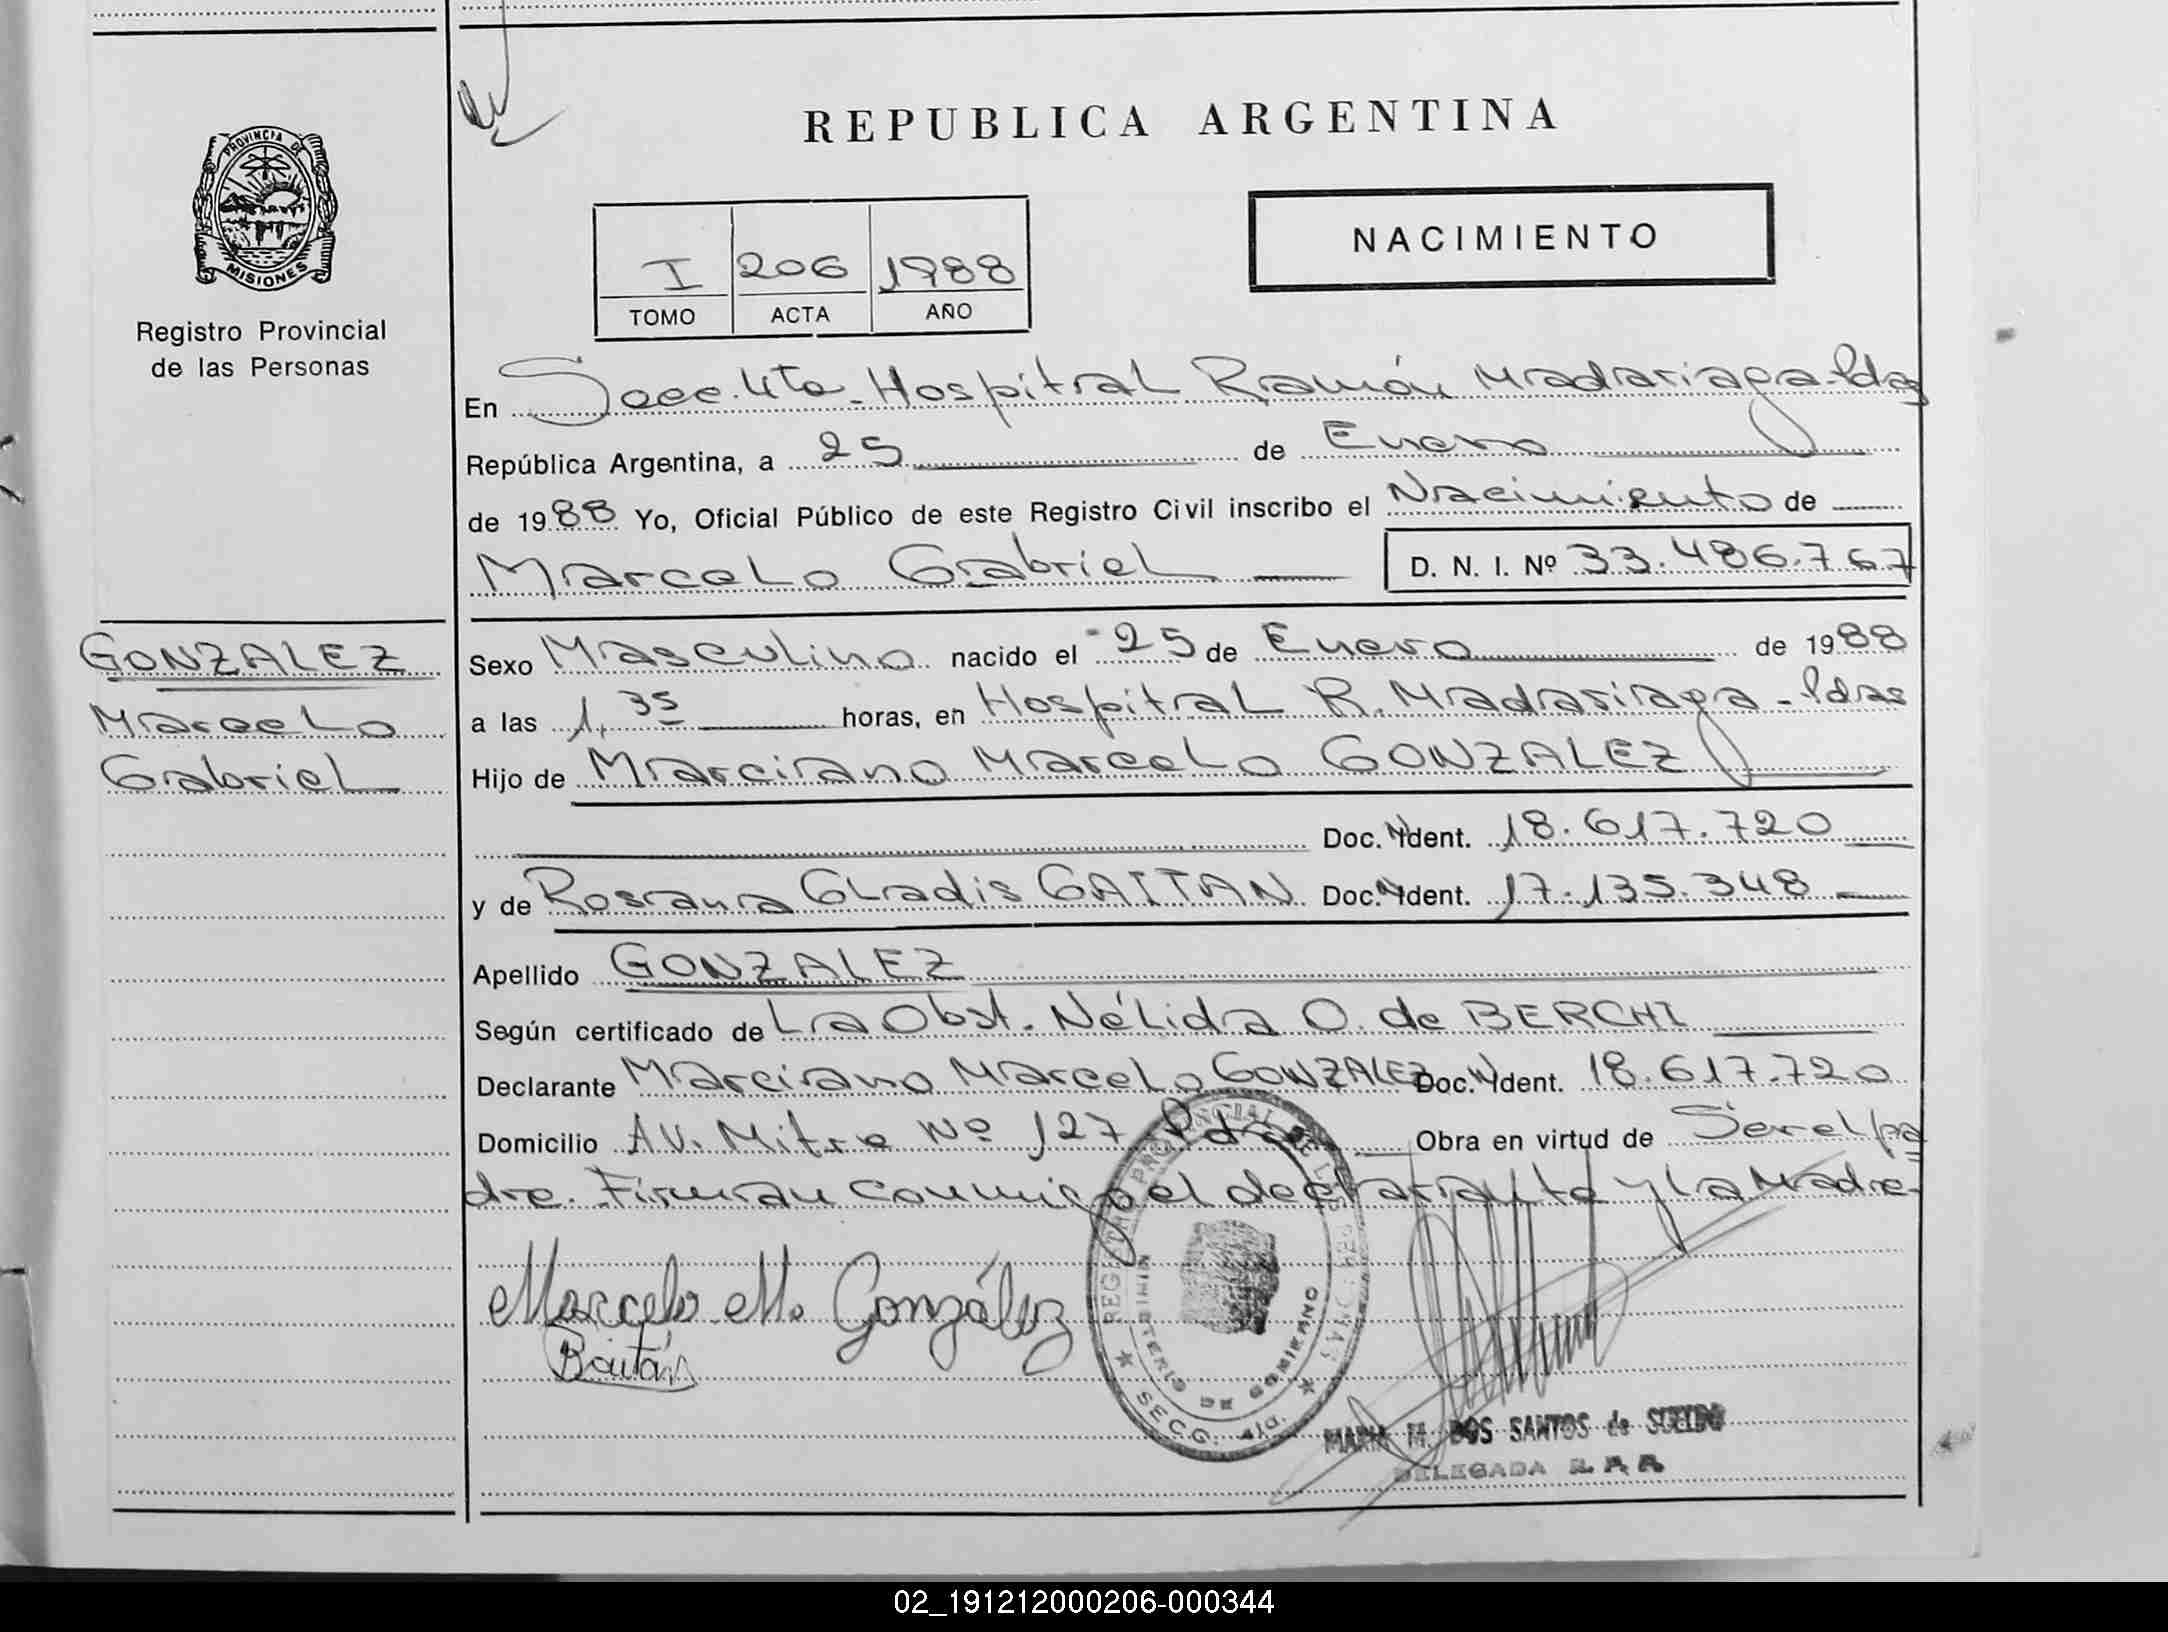 REPUBLICA ARGENTINA
PROVINCIA DE
MISIONES
Registro Provincial
de las Personas
NACIMIENTO
I 206 1988
TOMO ACTA AÑO
En Secc. 4ta. Hospital Ramón Madariaga-Pdas
República Argentina, a 25 de Enero
de 1988 Yo, Oficial Público de este Registro Civil inscribo el Nacimiento de
Marcelo Gabriel D. N. I. Nº 33.486.767
GONZALEZ
Marcelo
Gabriel
Sexo Masculino nacido el 25 de Enero de 1988
a las 1,35 horas, en Hospital R. Madariaga - Pdas
Hijo de Marciano Marcelo GONZALEZ
Doc. Ident. 18.617.720
y de Rosana Gladis GAITAN Doc. Ident. 17.135.348
Apellido GONZALEZ
Según certificado de La Obst. Nélida O. de BERCHI
Declarante Marciano Marcelo GONZALEZ Doc. Ident. 18.617.720
Domicilio Av. Mitre Nº 127 Pdas Obra en virtud de Ser el pa
dre. Firman conmigo el declarante y la Madre-
Marcelo M. González
REGISTRO PROVINCIAL DE LAS PERSONAS
MINISTERIO DE GOBIERNO
SECC. 4ta.
MARIA M. DOS SANTOS de SUELDO
DELEGADA R. P. P.
02_191212000206-000344